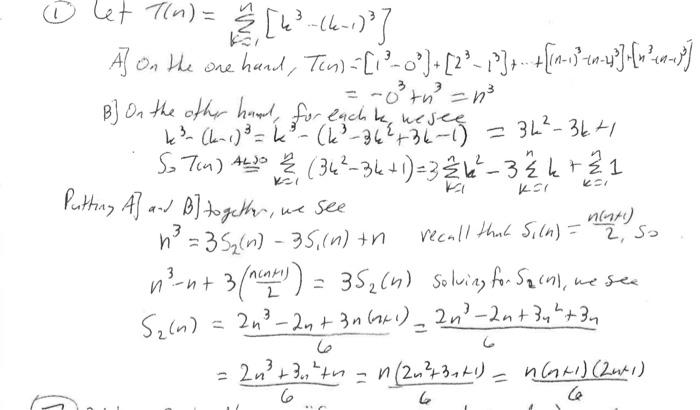 ① Let T(n) = Σ_{k=1}^{n} [k³-(k-1)³]
A] On the one hand, T(n) = [1³-0³]+[2³-1³]+...+[(n-1)³-(n-2)³]+[n³-(n-1)³]
= -0³+n³ = n³
B] On the other hand, for each k, we see
k³-(k-1)³ = k³-(k³-3k²+3k-1) = 3k²-3k+1
So T(n) ALSO = Σ_{k=1}^{n} (3k²-3k+1) = 3Σ_{k=1}^{n} k² - 3Σ_{k=1}^{n} k + Σ_{k=1}^{n} 1
Putting A] and B] together, we see
n³ = 3S₂(n) - 3S₁(n) + n recall that S₁(n) = n(n+1)/2, so
n³-n+3(n(n+1)/2) = 3S₂(n) solving for S₂(n), we see
S₂(n) = (2n³-2n+3n(n+1))/6 = (2n³-2n+3n²+3n)/6
= (2n³+3n²+n)/6 = n(2n²+3n+1)/6 = n(n+1)(2n+1)/6